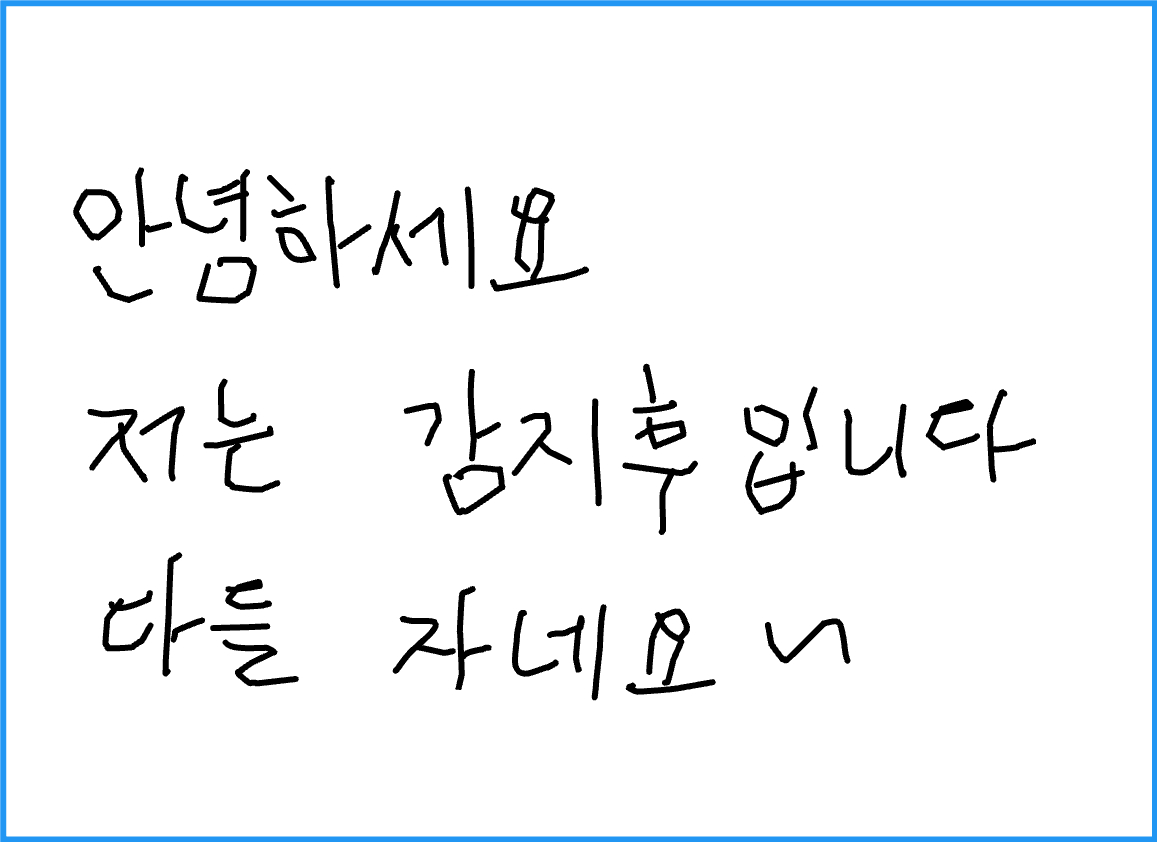 안념하세요
저는 감지후입니다
다들 자네요 ~